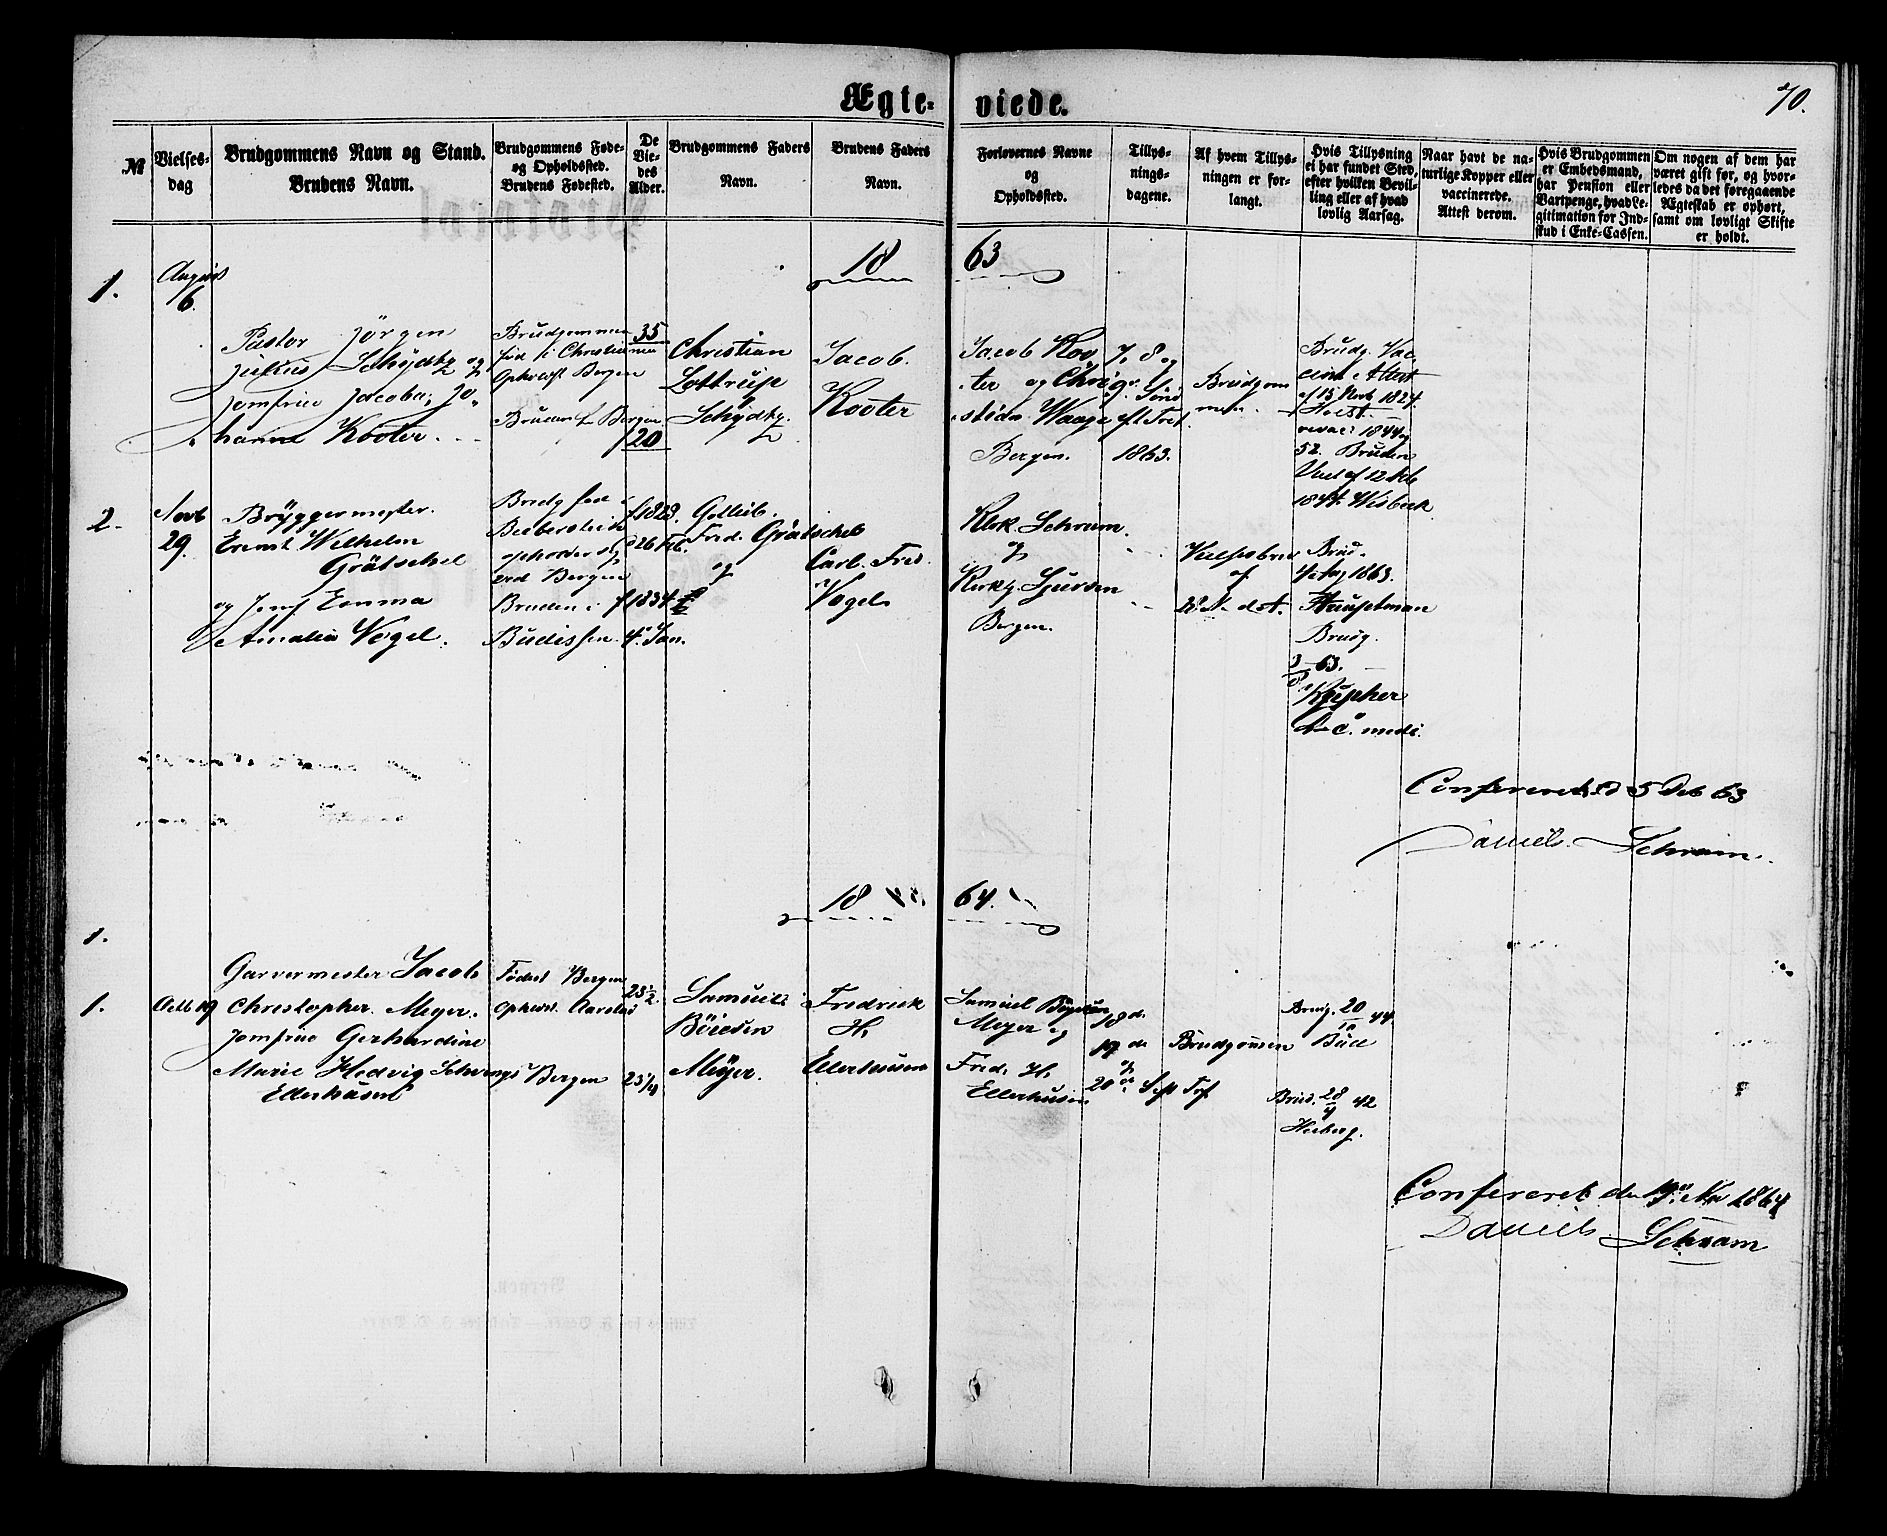 Ægte-
viede.
70.
№
Vielses-
dag
Brudgommens Navn og Stand.
Brudens Navn.
Brudgommens Føde-
og Opholdssted.
Brudens Fødested.
De
Vie-
des
Alder.
Brudgommens Faders
Navn.
Brudens Faders
Navn.
Forlovernes Navne
og
Opholdssted.
Tillys-
nings-
dagene.
Af hvem Tillys-
ningen er for-
langt.
Hvis Tillysning
ei har fundet Sted,
efter hvilken Bevil-
ling eller af hvad
lovlig Aarsag.
Naar havt de na-
turlige Kopper eller
vaccinerede.
Attest derom.
Hvis Brudgommen
er Embedsmand,
har Pension eller
Vartpenge, hvad Le-
gitimation for Ind-
skud i Enke-Cassen.
Om nogen af dem har
været gift før, og hvor-
ledes da det foregaaende
Ægteskab er ophørt,
samt om lovligt Skifte
er holdt.
18 63
1.
August
6.
Pastor Jörgen
Julius Schydtz og
Jomfrue Jacoba, Jo-
hanna Kooter.
Brudgommen
fød i Christia
Opholdst Bergen
Bruden f Bergen
35
20
Christian
Lottrup
Schydtz.
Jacob.
Kooter
Jacob Koo
ter og Chri
stian Waage
Bergen.
7. 8 og
9. Sönd
eft. Tref.
1863.
Brudgom
men.
Brudg. Vac
cint Attest
1824.
Holst
revac: 1844 og
52. Bruden
Vac af 12 Feb
1844. Wisbech
2.
Novb
29.
Bryggermester.
Ernst Wilhelm
Grätschel
og Jomf Emma
Amalia Vogel.
Brudg fød i
opholder sig
ved Bergen
Bruden i
Budissen.
f 1829.
d 26 Feb.
f 1834
4. Jan.
Gotlieb.
Fred. Grätschel
og
Carl. Fred.
Vogel
Kirk. Schram.
og
Kirkg Sjursen
Bergen.
af
Brud.
1863.
Hauptman
Brudg.
63.
18 64.
1.
1.
Octb 19
Garvermester Jacob
Christopher. Meyer.
Jomfrue Gerhardine
Marie Hedvig
Ellerhusen
Födest Bergen
Opholdst. Aarstad
Bergen
23½.
Samuel
Böiesen
Meyer.
Fredrick
H.
Ellerhusen
Samuel Böyesen
Meyer og
Fred. H.
Ellerhusen
18 de
19 de
og
20 de Sept Tref
Brudgommen
Brudg. 20/10 44
Bull
Brud. 28/4 42
Heiberg.
Confereret d 5 Deb 63
Daniels. Schram.
Confereret den 19de 1864
Daniels. Schram